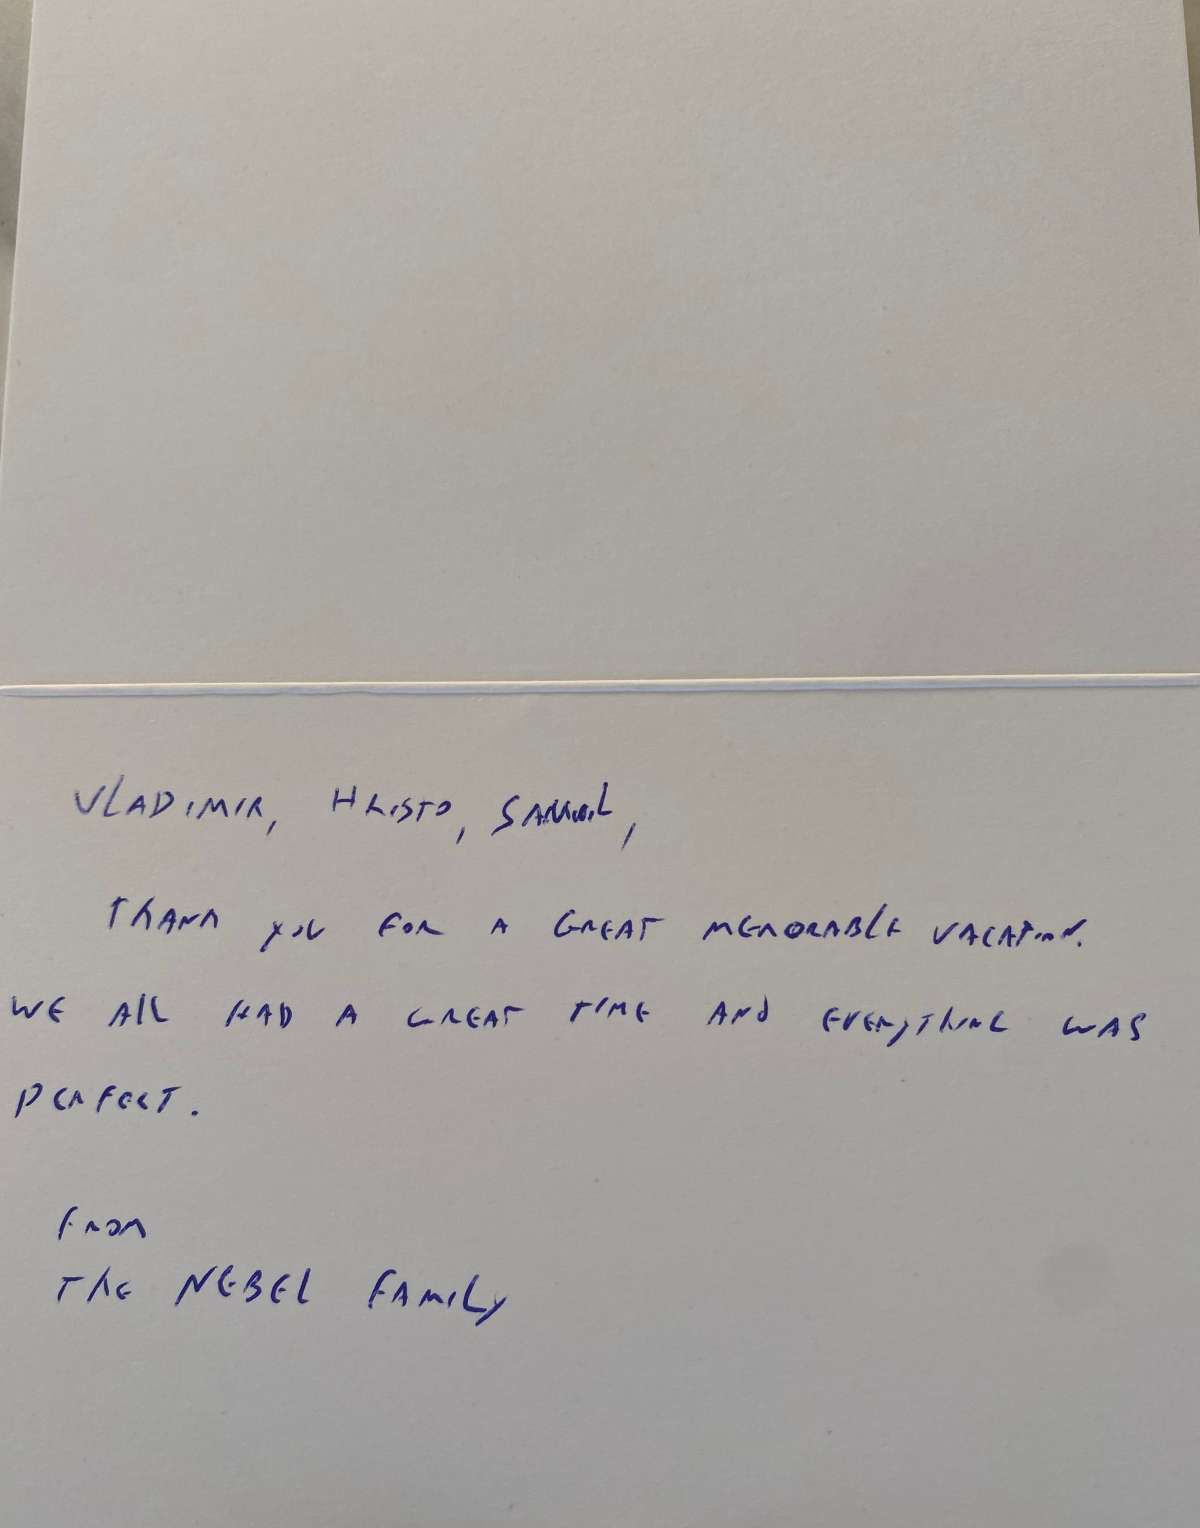 VLADIMIR, HRISTO,
THANK YOU FOR A GREAT MEMORABLE VACATION.
WE ALL HAD A GREAT TIME AND EVERYTHING WAS
PERFECT.
FROM
THE NEBEL FAMILY